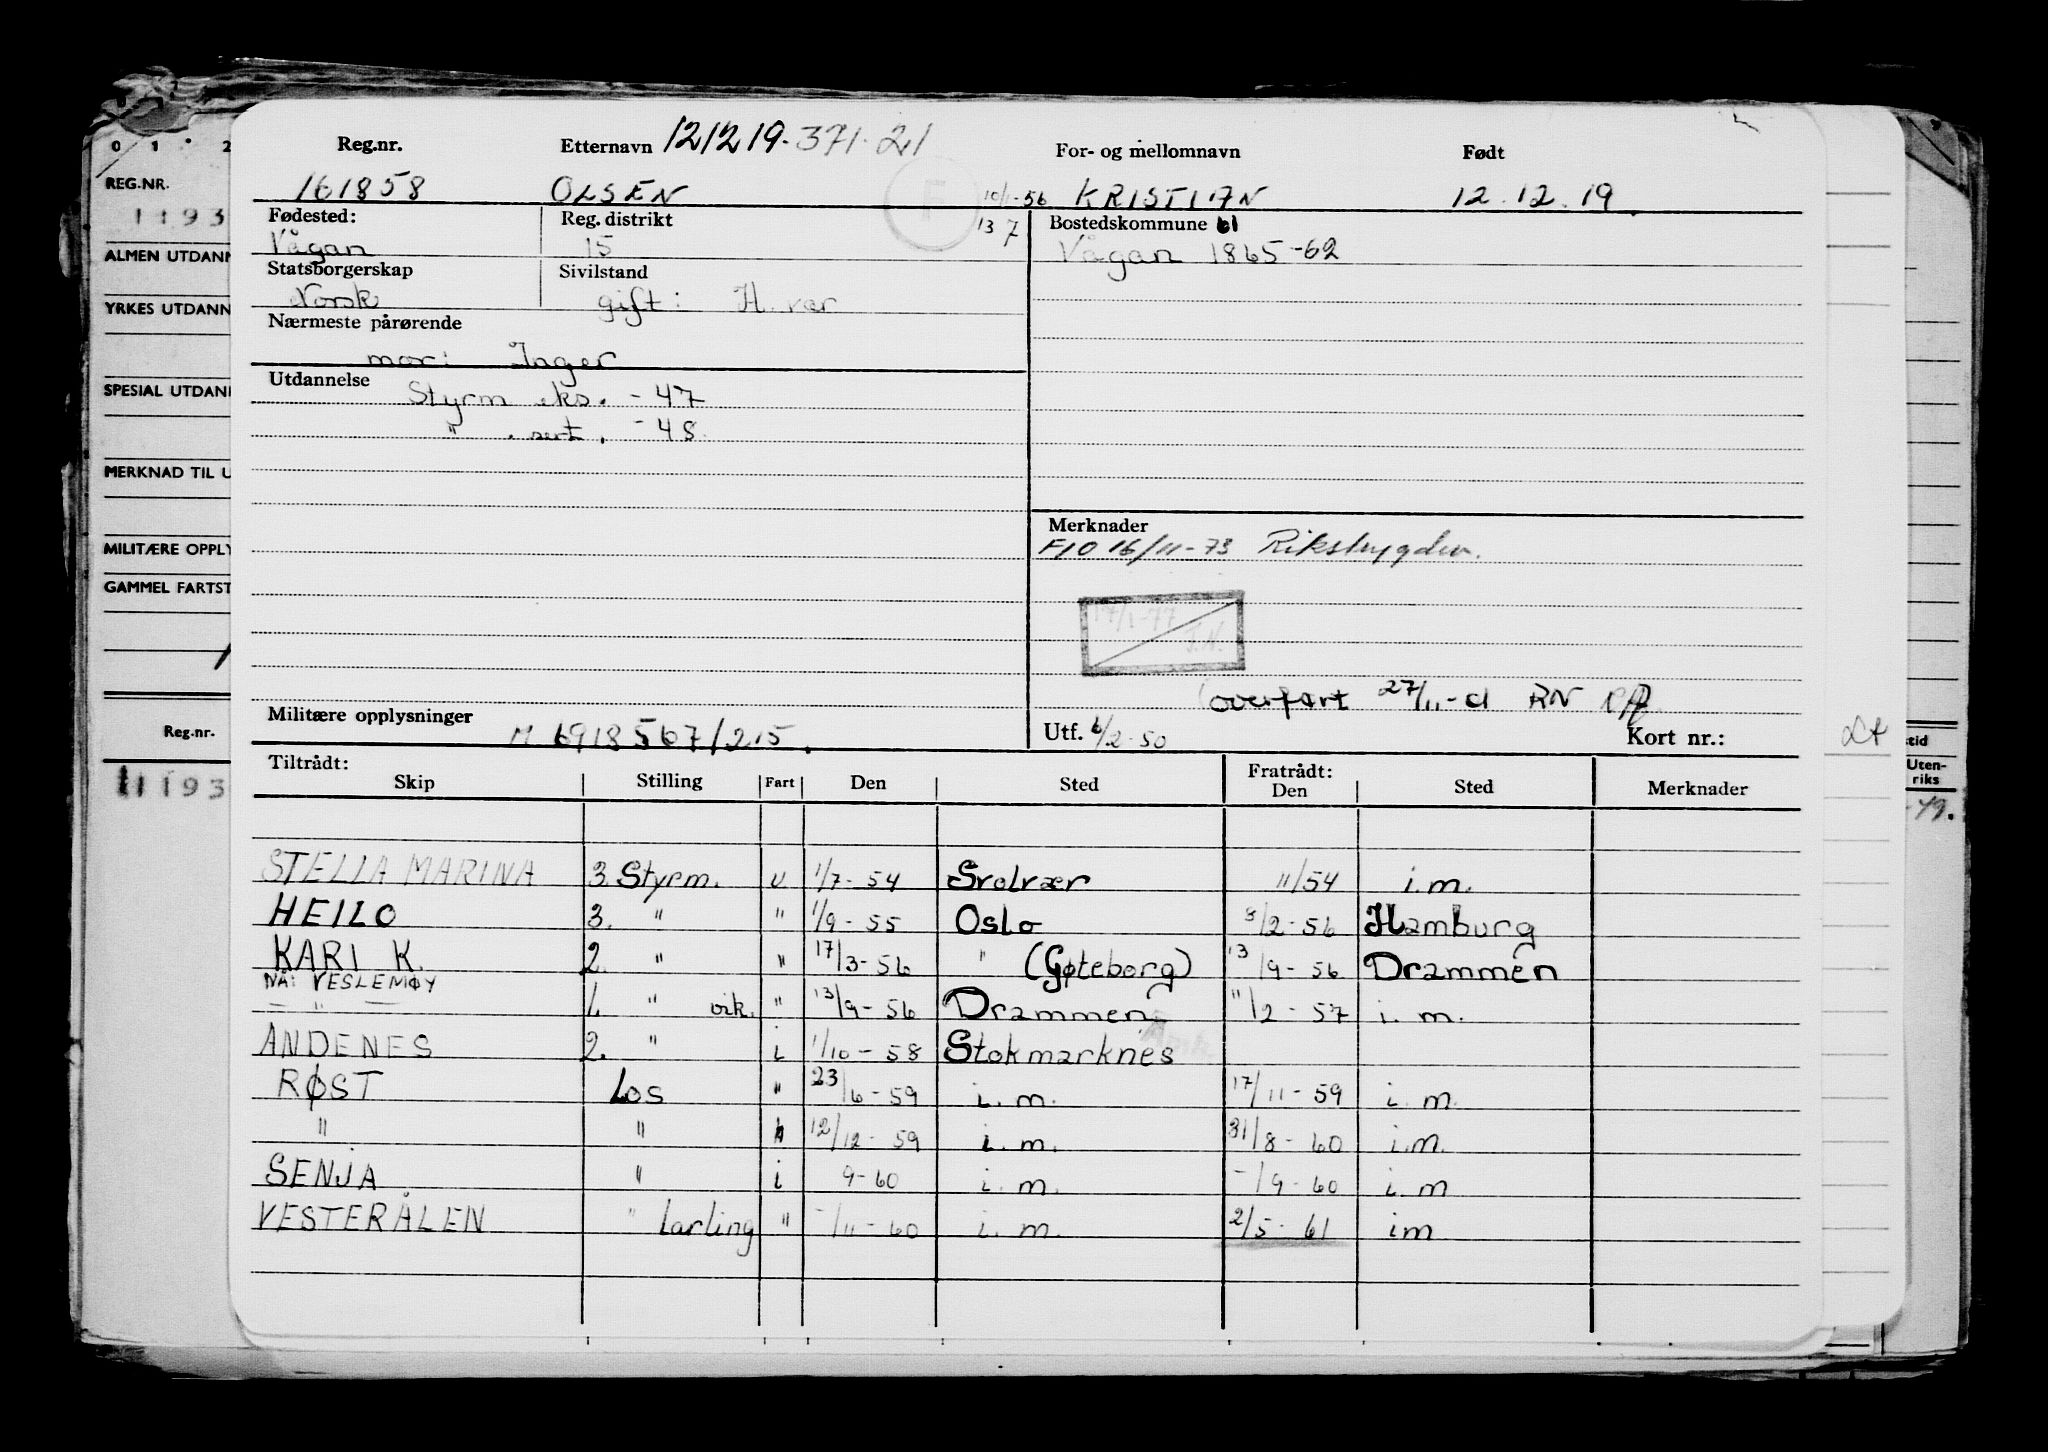 Reg.nr. Etternavn 121219.371.21 For- og mellomnavn Født
161858 OLSEN 10/1-56 KRISTIAN 12.12.19.
F
Fødested: Reg. distrikt 13 7 Bostedskommune
Vågan 15 Vågan 1865-62
Statsborgerskap Sivilstand
Norsk gift: H. vær
Nærmeste pårørende
mor: Inger
Utdannelse
Styrm eks. - 47
" sert. - 48.
Merknader
FIO 16/11-73 Rikstrygden.
17/1-77
J.N.
overført 27/11- RN
Militære opplysninger
M 6918567/215.
Utf. 6/2-50 Kort nr.:
Tiltrådt: Fratrådt:
Skip Stilling Fart Den Sted Den Sted Merknader
STELLA MARINA 3. Styrm. u 1/7-54 Svolvær 11/54 i.m.
HEILO 3. " " 1/9-55 Oslo 8/2-56 Hamburg
KARI K. 2. " " 17/3-56 " (Gøteborg) 13/9-56 Drammen
NÅ: VESLEMØY
" 1. " vik. " 13/9-56 Drammen 11/2-57 i. m.
ANDENES 2. " i 1/10-58 Stokmarknes
RØST Los " 23/6-59 i. m. 17/11-59 i. m.
" " 12/12-59 i. m. 31/8-60 i.m.
SENJA " i 9-60 i. m. -/9-60 i. m
VESTERÅLEN " lærling " -/11-60 i. m. 2/5-61 im
0 1 2
REG.NR.
1193
ALMEN UTDANN
YRKES UTDANN
SPESIAL UTDAN
MERKNAD TIL U
MILITÆRE OPPLY
GAMMEL FARTST
Reg.nr.
1193
Uten-
riks
-49.